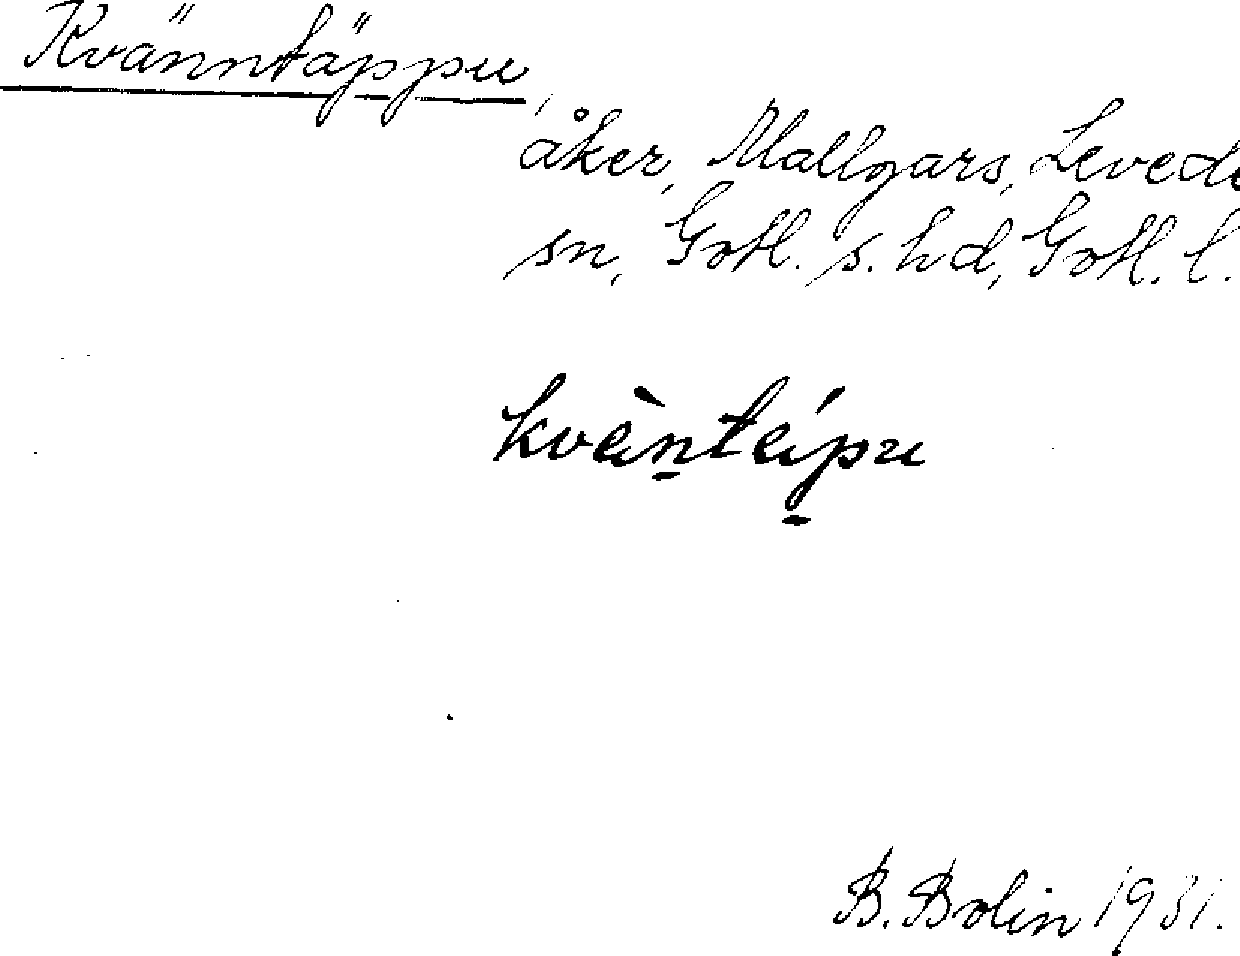 Kvänntäppu,
åker, Mallgars, Levede
sn, Gotl. s. hd, Gotl. l.
kvä̀ṉtä́p̱u
B. Bolin 1931.